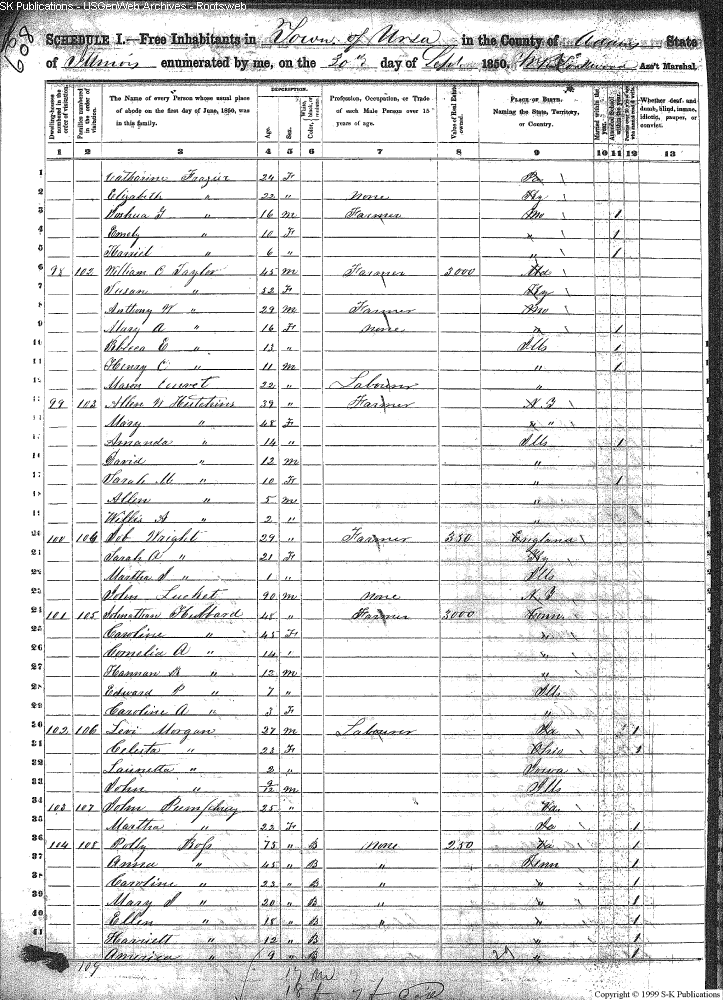 SK Publications - USGenWeb Archives - Rootsweb
608
SCHEDULE I.—Free Inhabitants in Town of Ursa in the County of Adams State
of Illinois enumerated by me, on the 20th day of Sept 1850. Ass't Marshal
Dwelling-houses numbered in the order of visitation. Families numbered in the order of visitation. The Name of every Person whose usual place of abode on the first day of June, 1850, was in this family. DESCRIPTION. Age. Sex. Color, White, black, or mulatto. Profession, Occupation, or Trade of each Male Person over 15 years of age. Value of Real Estate owned. PLACE OF BIRTH. Naming the State, Territory, or Country. Married within the year. Attended School within the year. Persons over 20 y'rs of age who cannot read & write. Whether deaf and dumb, blind, insane, idiotic, pauper, or convict.
1 2 3 4 5 6 7 8 9 10 11 12 13
1 Catharine Frazier 24 F
2 Elizabeth " 22 " none Ky
3 Joshua T " 16 m Farmer Mo 1
4 Emely " 10 F " 1
5 Harriel " 6 " " 1
6 98 102 William C Taylor 45 m Farmer 3000 Md
7 Susan " 52 F Ky
8 Anthony W " 29 m Farmer Mo
9 Mary A " 16 F none " 1
10 Rebeca E " 13 " Ills 1
11 Henry C " 11 m " 1
12 Mason 22 " Labourer "
13 99 103 Allen N Hutchins 39 " Farmer
Mary " 48 F "
Amanda " 14 " Ills 1
David " 12 m "
Sarah M " 10 F " 1
Allen " 5 m "
Willis A " 2 " "
20 100 104 Job Wright 29 " Farmer 350 England
21 Sarah A " 21 F Ky
22 Martha J " 1 " Ills
23 John Lucket 90 m none
24 101 105 Johnathan Hubbard 48 " Farmer 3000 Conn
25 Caroline " 45 F "
26 Cornelia A " 14 " "
27 Hannan B " 12 m "
28 Edward P " 7 " Ills
29 Caroline A " 3 F "
30 102 106 Levi Morgan 27 m Labourer 1
31 Celesta " 23 F Ohio 1
32 " 2 " Iowa
33 John " 9/12 m Ills
34 103 107 John Pumphrey 25 " Va
35 Martha " 22 F 1
36 104 108 Polly Boss 75 " B none 250 Va 1
37 Anna " 45 " B " Tenn 1
38 Caroline " 23 " B " 1
39 Mary J " 20 " B " " 1
40 Ellen " 18 " B " " 1
41 Harriett " 12 " B " 1
America " 9 " B " 1
109
17 m
Copyright © 1999 S-K Publications